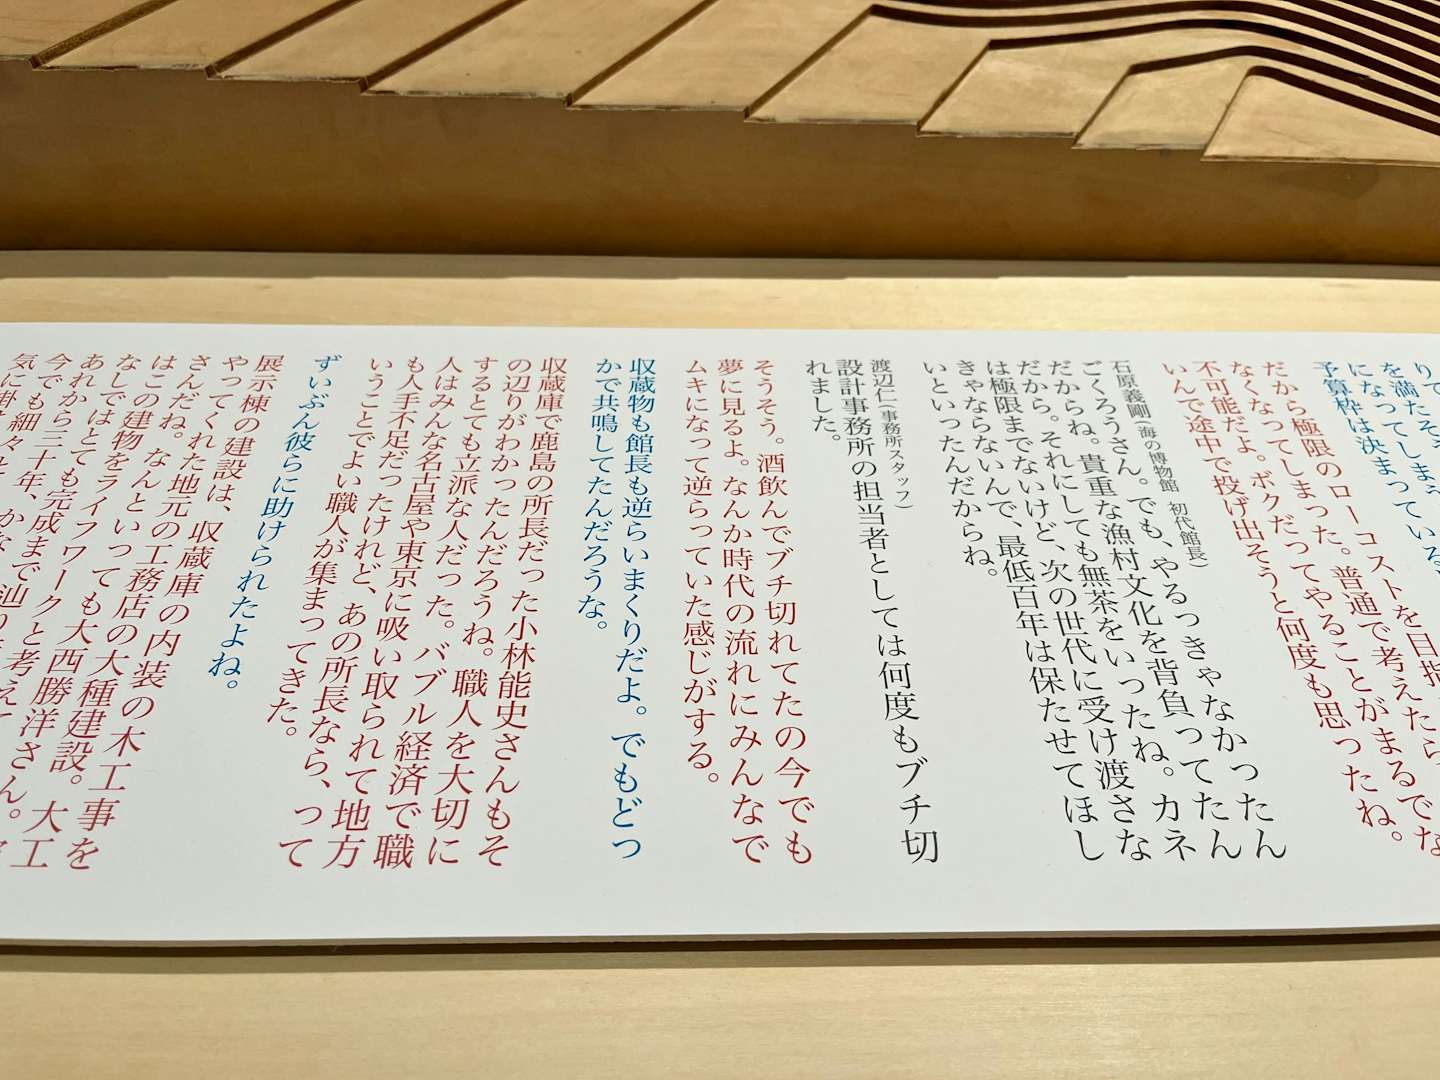 りで
を満たそう
になってしまう
予算枠は決まっている
だから極限のローコストを目指
なくなってしまった。普通で考えたら、
不可能だよ。ボクだってやることがまるでな
いんで途中で投げ出そうと何度も思ったね。
石原義剛(海の博物館 初代館長)
ごくろうさん。でも、やるっきゃなかったん
だからね。貴重な漁村文化を背負ってたん
だから。それにしても無茶をいったね。カネ
は極限までないけど、次の世代に受け渡さな
きゃならないんで、最低百年は保たせてほし
いといったんだからね。
渡辺仁(事務所スタッフ)
設計事務所の担当者としては何度もブチ切
れました。
そうそう。酒飲んでブチ切れてたの今でも
夢に見るよ。なんか時代の流れにみんなで
ムキになって逆らっていた感じがする。
収蔵物も館長も逆らいまくりだよ。でもどっ
かで共鳴してたんだろうな。
収蔵庫で鹿島の所長だった小林能史さんもそ
の辺りがわかったんだろうね。職人を大切に
するとても立派な人だった。バブル経済で職
人はみんな名古屋や東京に吸い取られて地方
も人手不足だったけれど、あの所長なら、って
いうことでよい職人が集まってきた。
ずいぶん彼らに助けられたよね。
展示棟の建設は、収蔵庫の内装の木工事を
やってくれた地元の工務店の大種建設。大工
さんだね。なんといっても大西勝洋さん。
はこの建物をライフワークと考えて
なしではとても完成まで辿り
あれから三十年、かな
今でも細々と
気に掛